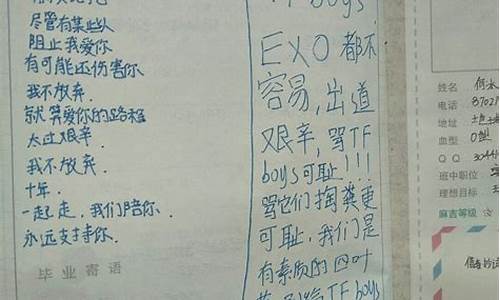 尽管有某些人
阻止我爱你
有可能还伤害你
我不放弃.
就算爱你的路程
太过艰辛.
我不放弃.
十年.
一起走,我们陪你.
永远支持你.
毕业寄语
boys
EXO都不
容易,出道
艰辛,骂TF
boys可耻!!!
骂它们掏粪更
可耻,我们是
有素质的四叶
TFboys
姓名
电话 8702
地址
血型 O型
QQ 3044
班中职位
理想目标
麻吉等级